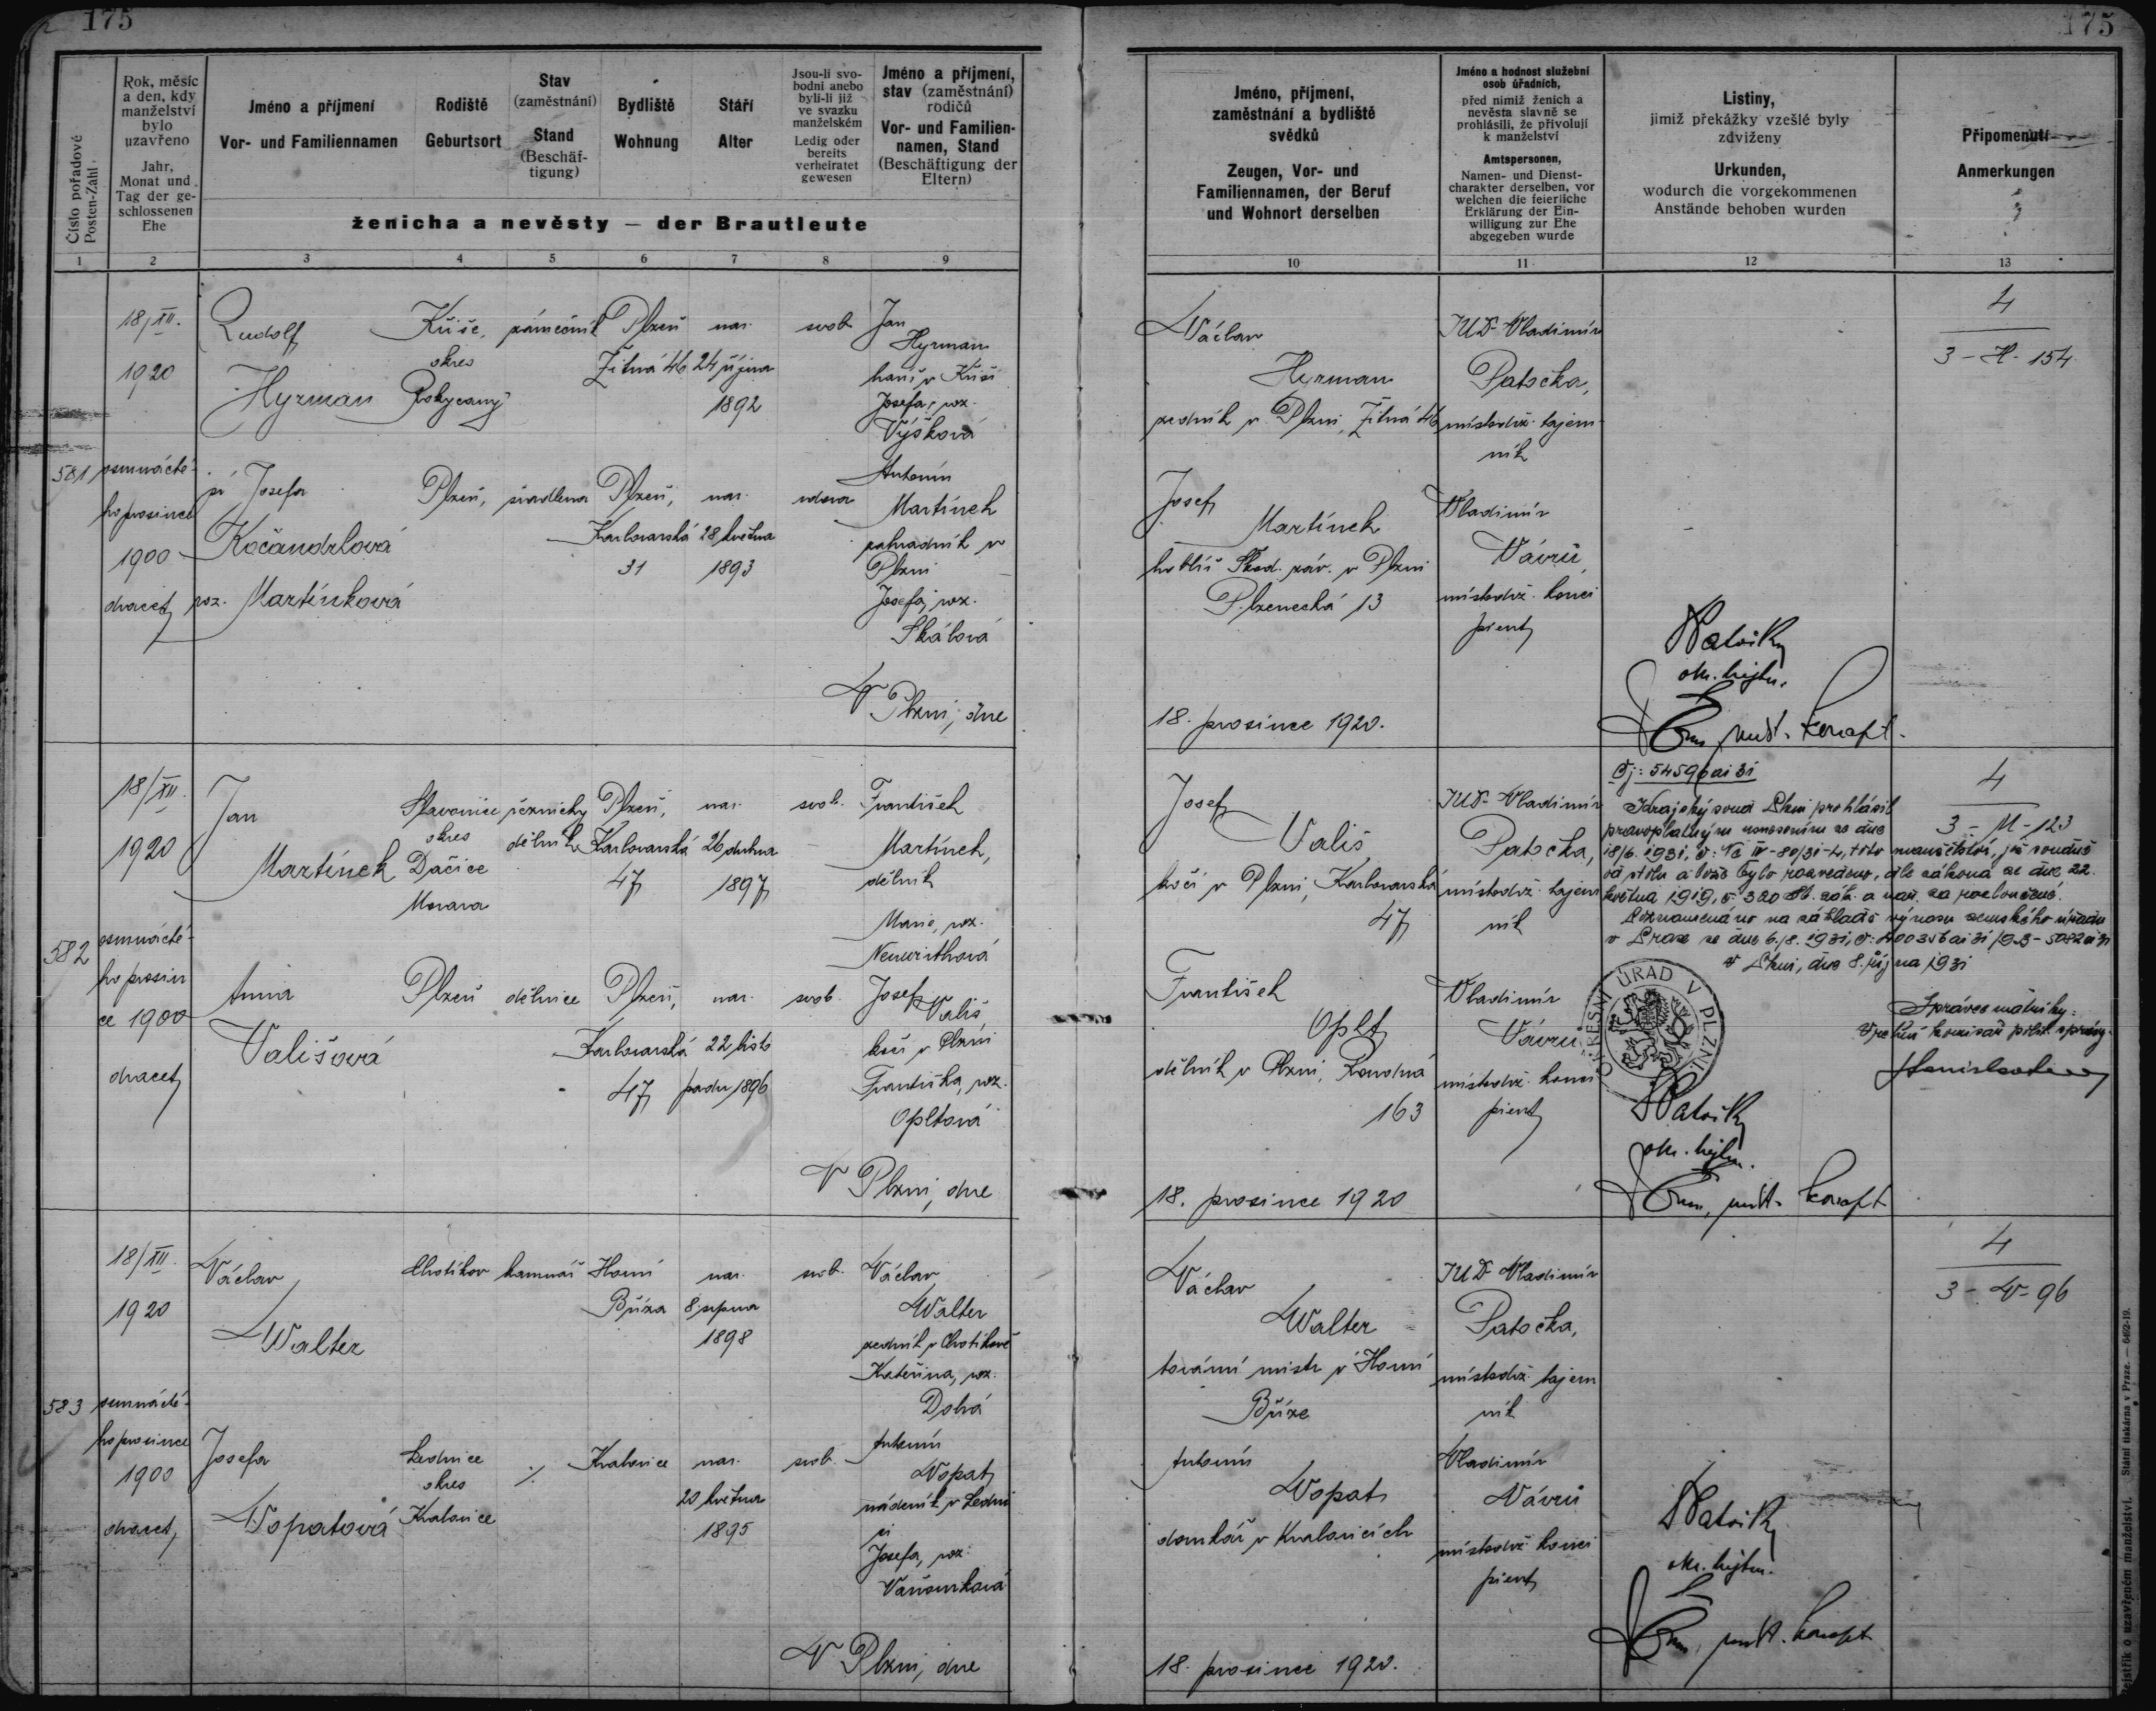 175
175
Číslo pořadové
Posten-Zahl
Rok, měsíc
a den, kdy
manželství
bylo
uzavřeno
Jahr,
Monat und
Tag der ge-
schlossenen
Ehe
Jméno a příjmení
Vor- und Familiennamen
Rodiště
Geburtsort
Stav
(zaměstnání)
Stand
(Beschäf-
tigung)
Bydliště
Wohnung
Stáří
Alter
Jsou-li svo-
bodni anebo
byli-li již
ve svazku
manželském
Ledig oder
bereits
verheiratet
gewesen
Jméno a příjmení,
stav (zaměstnání)
rodičů
Vor- und Familien-
namen, Stand
(Beschäftigung der
Eltern)
ženicha a nevěsty — der Brautleute
1 2 3 4 5 6 7 8 9
Jméno, příjmení,
zaměstnání a bydliště
svědků
Zeugen, Vor- und
Familiennamen, der Beruf
und Wohnort derselben
Jméno a hodnost služební
osob úřadních,
před nimiž ženich a
nevěsta slavně se
prohlásili, že přivolují
k manželství
Amtspersonen,
Namen- und Dienst-
charakter derselben, vor
welchen die feierliche
Erklärung der Ein-
willigung zur Ehe
abgegeben wurde
Listiny,
jimiž překážky vzešlé byly
zdviženy
Urkunden,
wodurch die vorgekommenen
Anstände behoben wurden
Připomenutí
Anmerkungen
10 11 12 13
581
18/XII.
1920
osmnácté-
ho prosince
1900
dvacet
Rudolf
Hyrman
Kříše,
okres
Rokycany
zámečník
Plzeň
Žitná 46
nar.
24 října
1892
svob.
Jan
Hyrman
havíř v Kříši
Josefa, roz.
Výšková
pí Josefa
Kočandrlová
roz. Martínková
Plzeň,
švadlena
Plzeň,
Karlovarská
31
nar.
28 května
1893
vdova
Antonín
Martínek
zahradník v
Plzni
Josefa, roz.
Skálová
V Plzni, dne
Václav
Hyrman
zedník v Plzni, Žitná 46
Josef
Martínek
Škod. záv. v Plzni
Plzenecká 13
18. prosince 1920.
JUDr Vladimír
Patočka,
místodrž. tajem-
ník
Vladimír
Vávrů,
místodrž. konci
pient
okr. hejtm.
4
3 - H - 154
582
18/XII.
1920
osmnácté-
ho prosin
ce 1900
dvacet
Jan
Martínek
Slavonice
okres
Dačice
Morava
řeznický
dělník
Plzeň,
Karlovarská
47
nar.
26 dubna
1897
svob.
František
Martínek,
dělník
Marie, roz.
Neuwirthová
Anna
Vališová
Plzeň
dělnice
Plzeň,
Karlovarská
47
nar.
22 listo
padu 1896
svob.
Josef
Vališ
kočí v Plzni
Františka, roz.
Opltová
V Plzni, dne
Josef
Vališ
kočí v Plzni, Karlovarská
47
František
Oplt
dělník v Plzni,
163
18. prosince 1920
JUDr Vladimír
Patočka,
místodrž. tajem
ník
Vladimír
Vávrů
místodrž. konci
pient
Čj: 54596 ai 31
Krajský soud Plzni prohlásil
pravoplatným usnesením ze dne
18/6. 1931, č: Nc IV - 80/31-4, toto manželství, jež soudně
od stolu a lože bylo rozvedeno, dle zákona ze dne 22.
května 1919, č. 320 Sb. zák. a nař. za rozloučené.
Poznamenáno na základě výnosu zemského úřadu
v Praze ze dne 6./8. 1931,
v Plzni, dne 8. října 1931
Správce matriky:
OKRESNÍ ÚŘAD V PLZNI
okr. hejtm.
4
3 - M - 123
583
18/XII.
1920
osmnácté-
ho prosince
1900
dvacet
Václav
Walter
Chotíkov
kamnář
Horní
Bříza
nar.
8 srpna
1898
svob.
Václav
Walter
zedník v Chotíkově
Kateřina, roz.
Dolrá
Josefa
Wopatová
Lednice
okres
Kralovice
·/.
Kralovice
nar.
20 května
1895
svob.
Antonín
Wopat
nádeník v Ledni
ci
Josefa, roz.
V Plzni, dne
Václav
Walter
tovární mistr v Horní
Bříze
Antonín
Wopat
domkář v Kralovicích
18. prosince 1920.
JUDr Vladimír
Patočka,
místodrž. tajem
ník
Vladimír
Vávrů
místodrž. konci
pient
okr. hejtm.
4
3 - W - 96
Rejstřík o uzavřeném manželství. Státní tiskárna v Praze. — 6462-19.